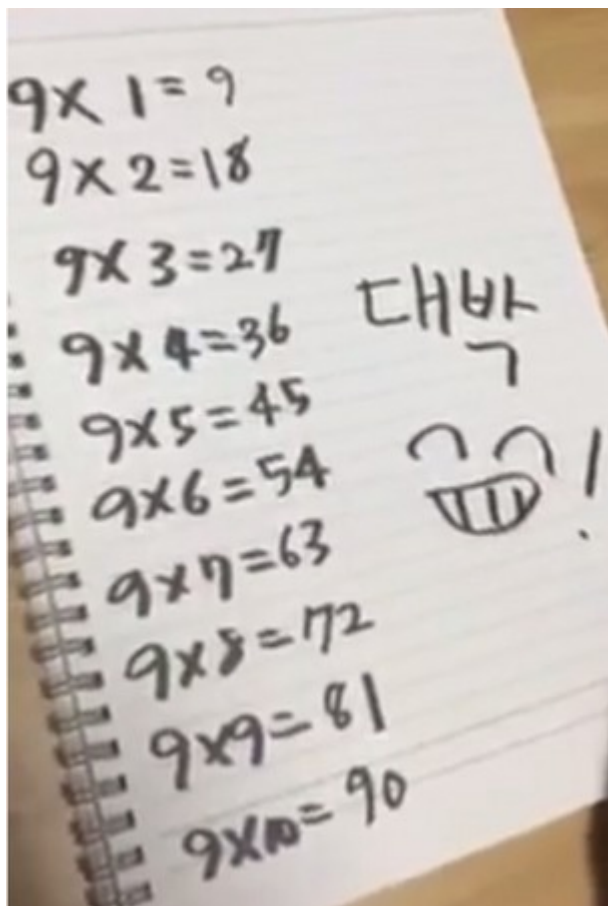 9×1=9
9×2=18
9×3=27
9×4=36
9×5=45
9×6=54
9×7=63
9×8=72
9×9=81
9×10=90
대박
!